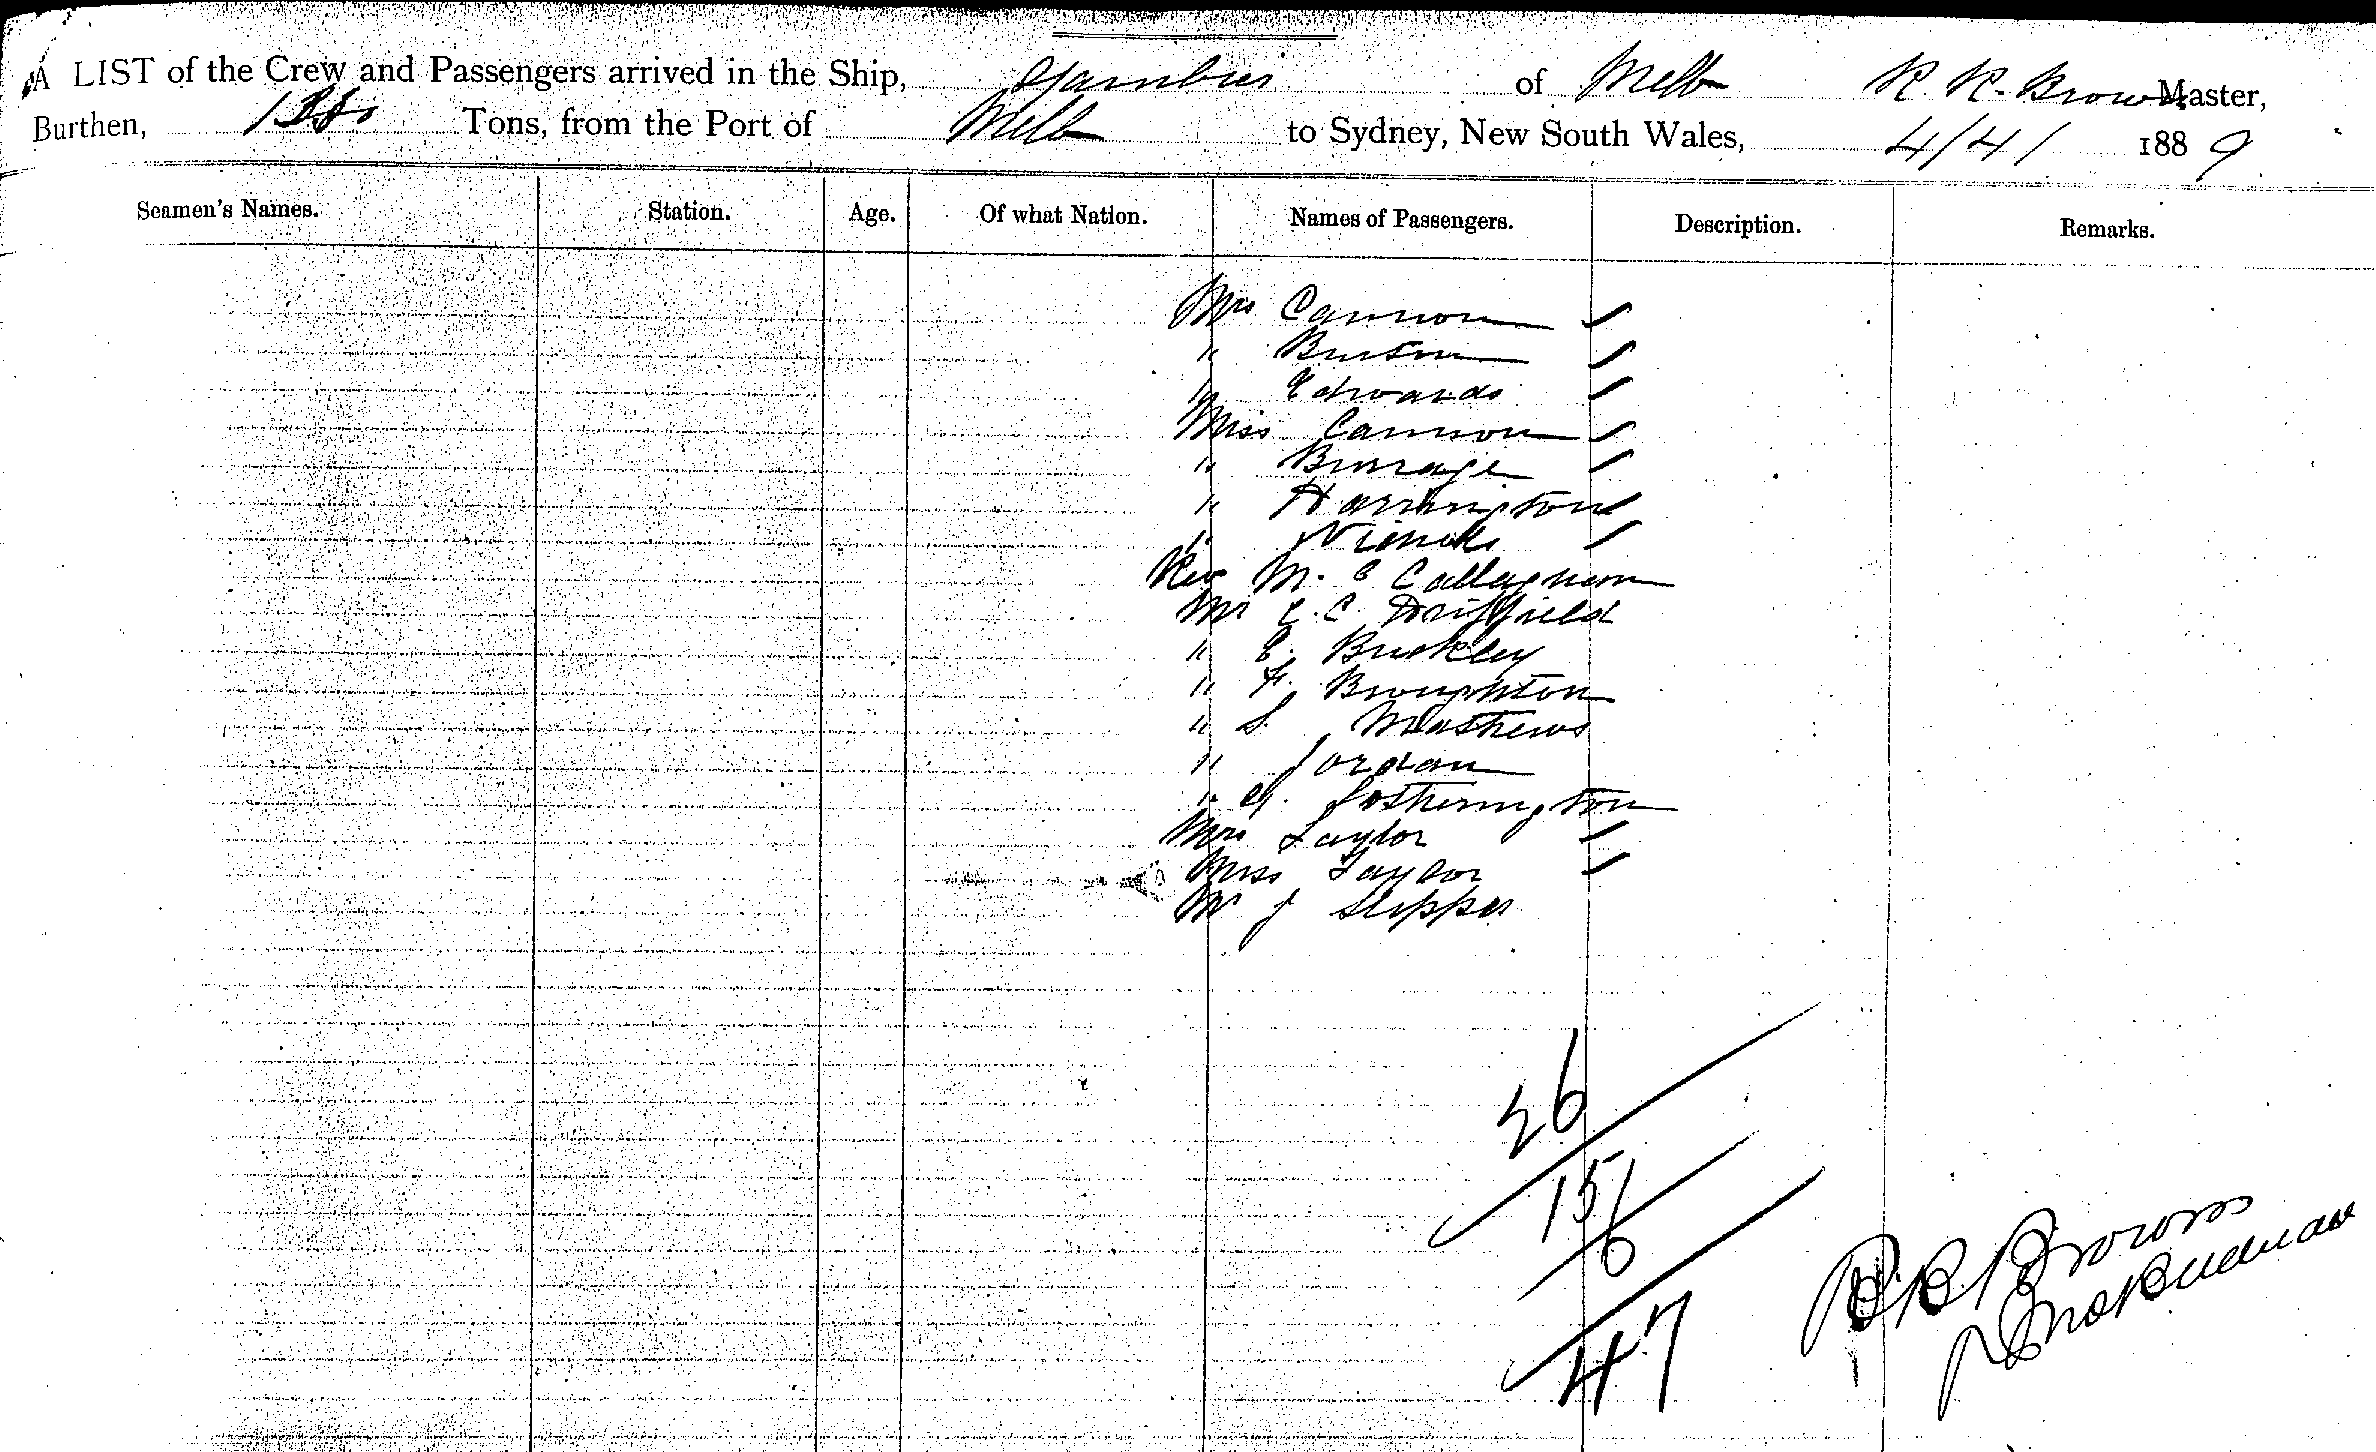 A LIST of the Crew and Passengers arrived in the Ship, Gambier of Melb R. R. Brown Master,
Burthen, Tons, from the Port of Melb to Sydney, New South Wales, 4/4/ 1889
Seamen's Names. Station. Age. Of what Nation. Names of Passengers. Description. Remarks.
Mrs Cannon
" Burton
" Edwards
Miss Cannon
" Burrage
" Harrington
" Nicholls
Rev M. E Callaghan
Mr E. C. Driffield
" E. Buckley
" F. Broughton
" S. Mathews
" Jordan
" G. Fotherington
Mrs Taylor
Miss Taylor
Mr J Slipper
26
15
6
47
R R Brown